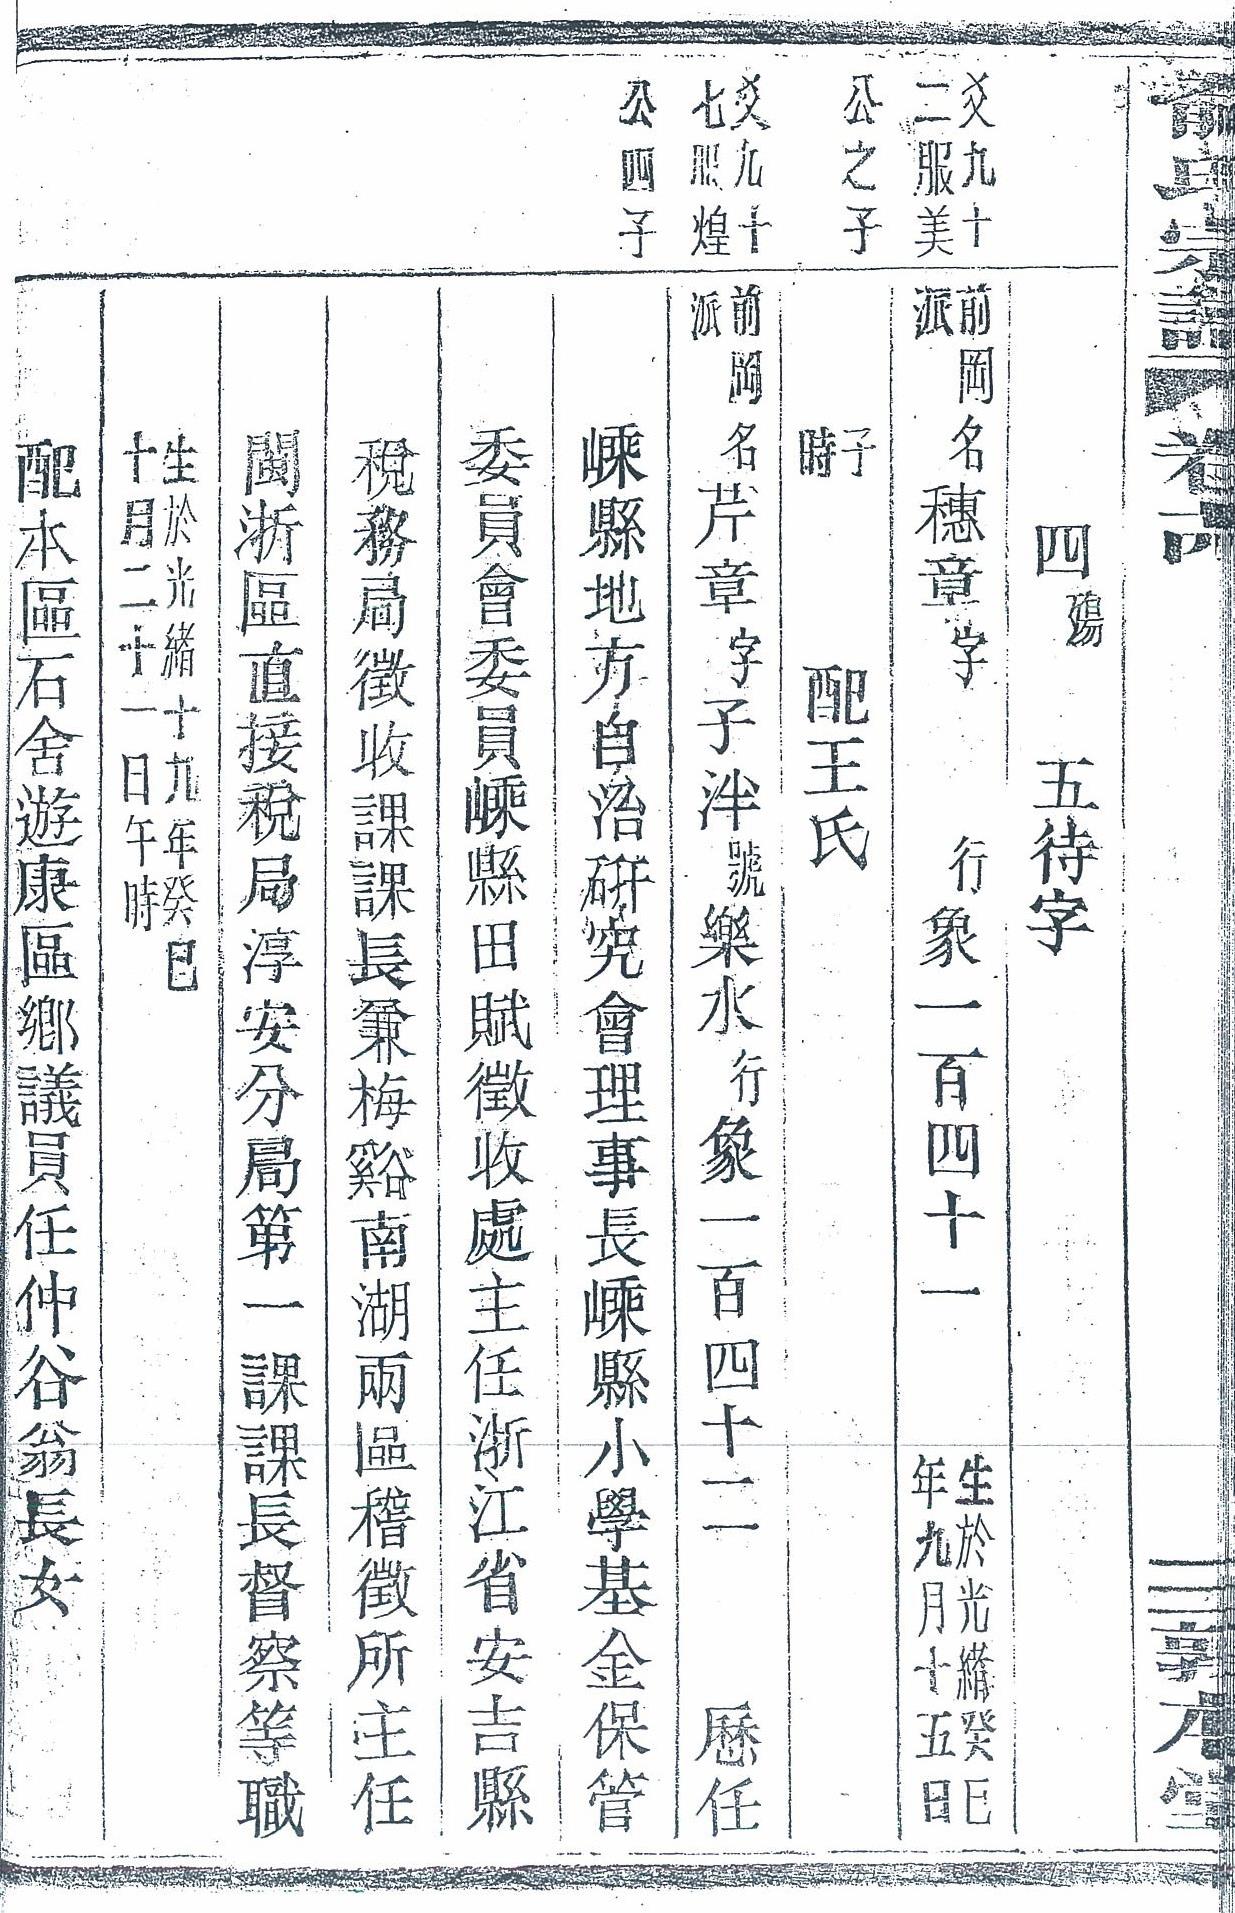 俞氏宗譜
卷
三
敦本堂
四殤 五待字
爻九十
二服美
公之子
前岡
派
名穗章字 行象一百四十一
生於光緒癸巳
年九月十五日
子
時
配王氏
爻九十
七服煌
公四子
前岡
派
名芹章字子泮號樂水行象一百四十二 歷任
嵊縣地方自治研究會理事長嵊縣小學基金保管
委員會委員嵊縣田賦徵收處主任浙江省安吉縣
稅務局徵收課課長兼梅谿南湖兩區稽徵所主任
閩浙區直接稅局淳安分局第一課課長督察等職
生於光緒十九年癸巳
十月二十一日午時
配本區石舍遊康區鄉議員任仲谷翁長女